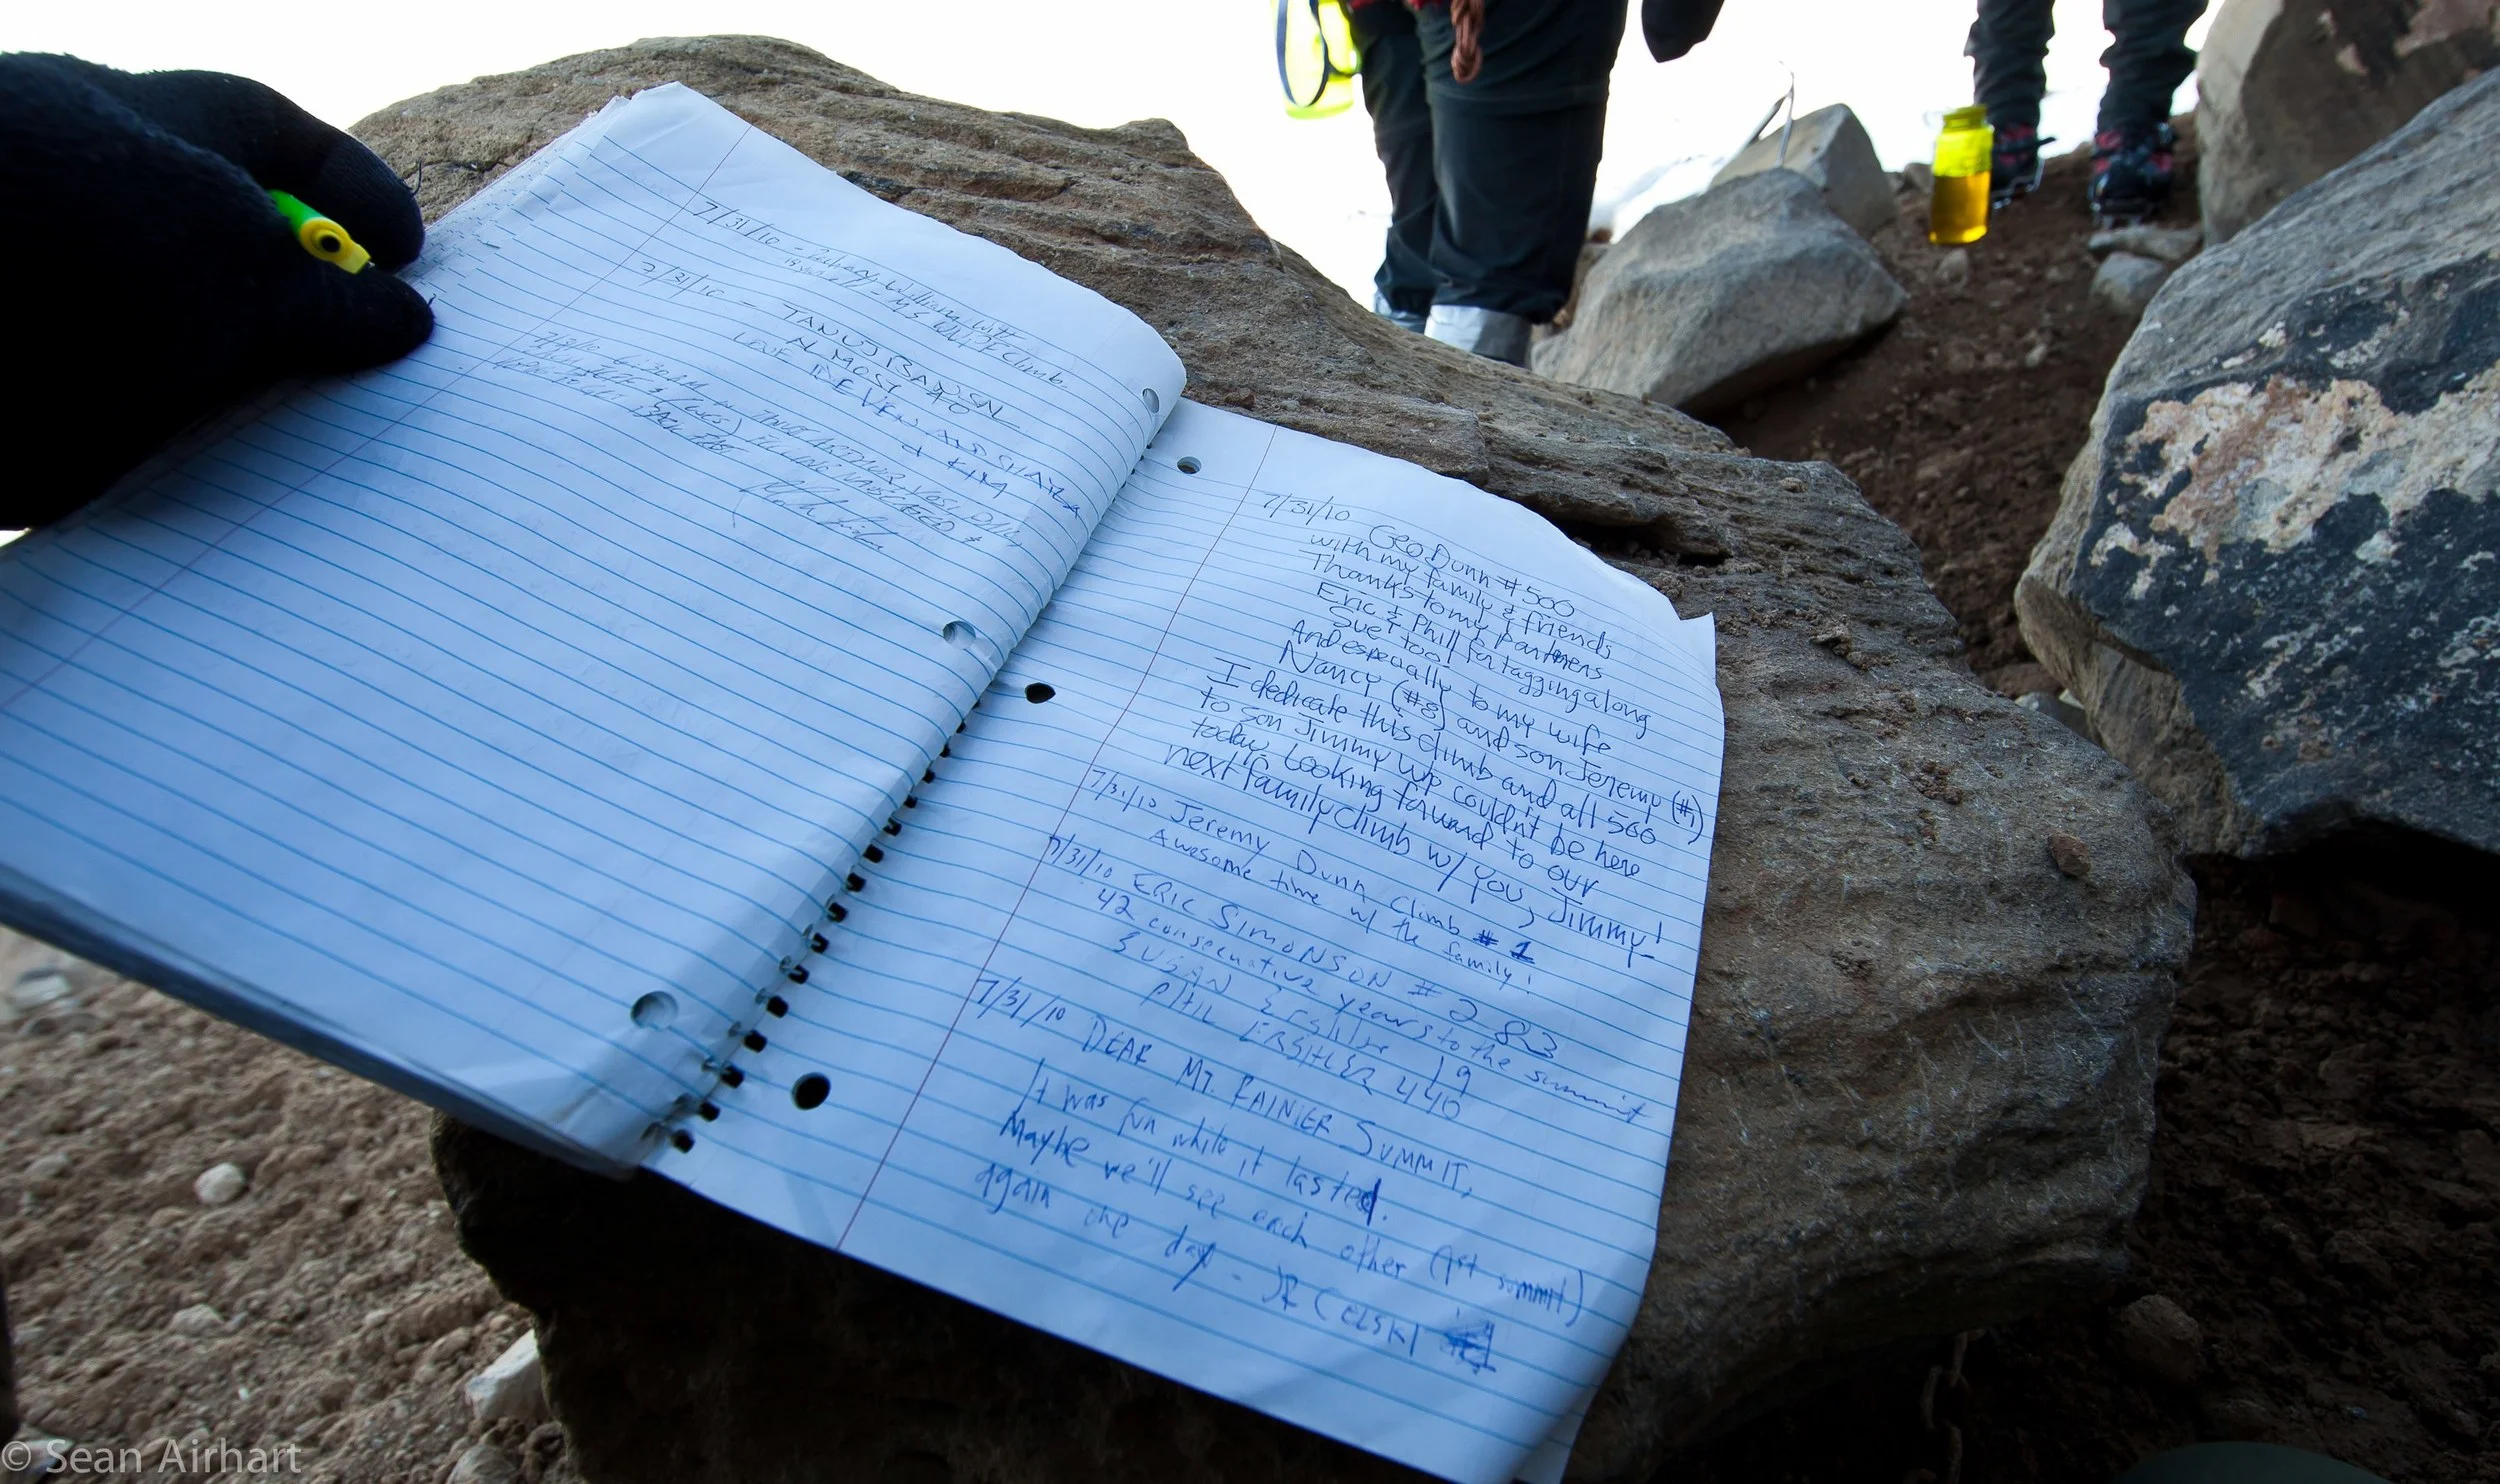 7/31/10 - Williams with
M.S. Climb.
7/31/10 -
ALMOST
LOVE DEVEN AND SHAILA
& KIM
7/31/10 6:30AM
7/31/10 Geo Dunn #500
with my family & friends
Thanks to my partners
Eric & Phil for tagging along
Sue too!
And especially to my wife
Nancy (#8) and son Jeremy (#1)
I dedicate this climb and all 500
to son Jimmy who couldn't be here
today. Looking forward to our
next family climb w/ you, Jimmy!
7/31/10 Jeremy Dunn Climb #1
Awesome time w/ the family!
7/31/10 ERIC SIMONSON #283
42 consecutive years to the summit
SUSAN 19
PHIL ERSHLER 440
7/31/10 DEAR MT. RAINIER SUMMIT,
It was fun while it lasted.
Maybe we'll see each other (1st summit)
again one day - JR CELSKI
© Sean Airhart